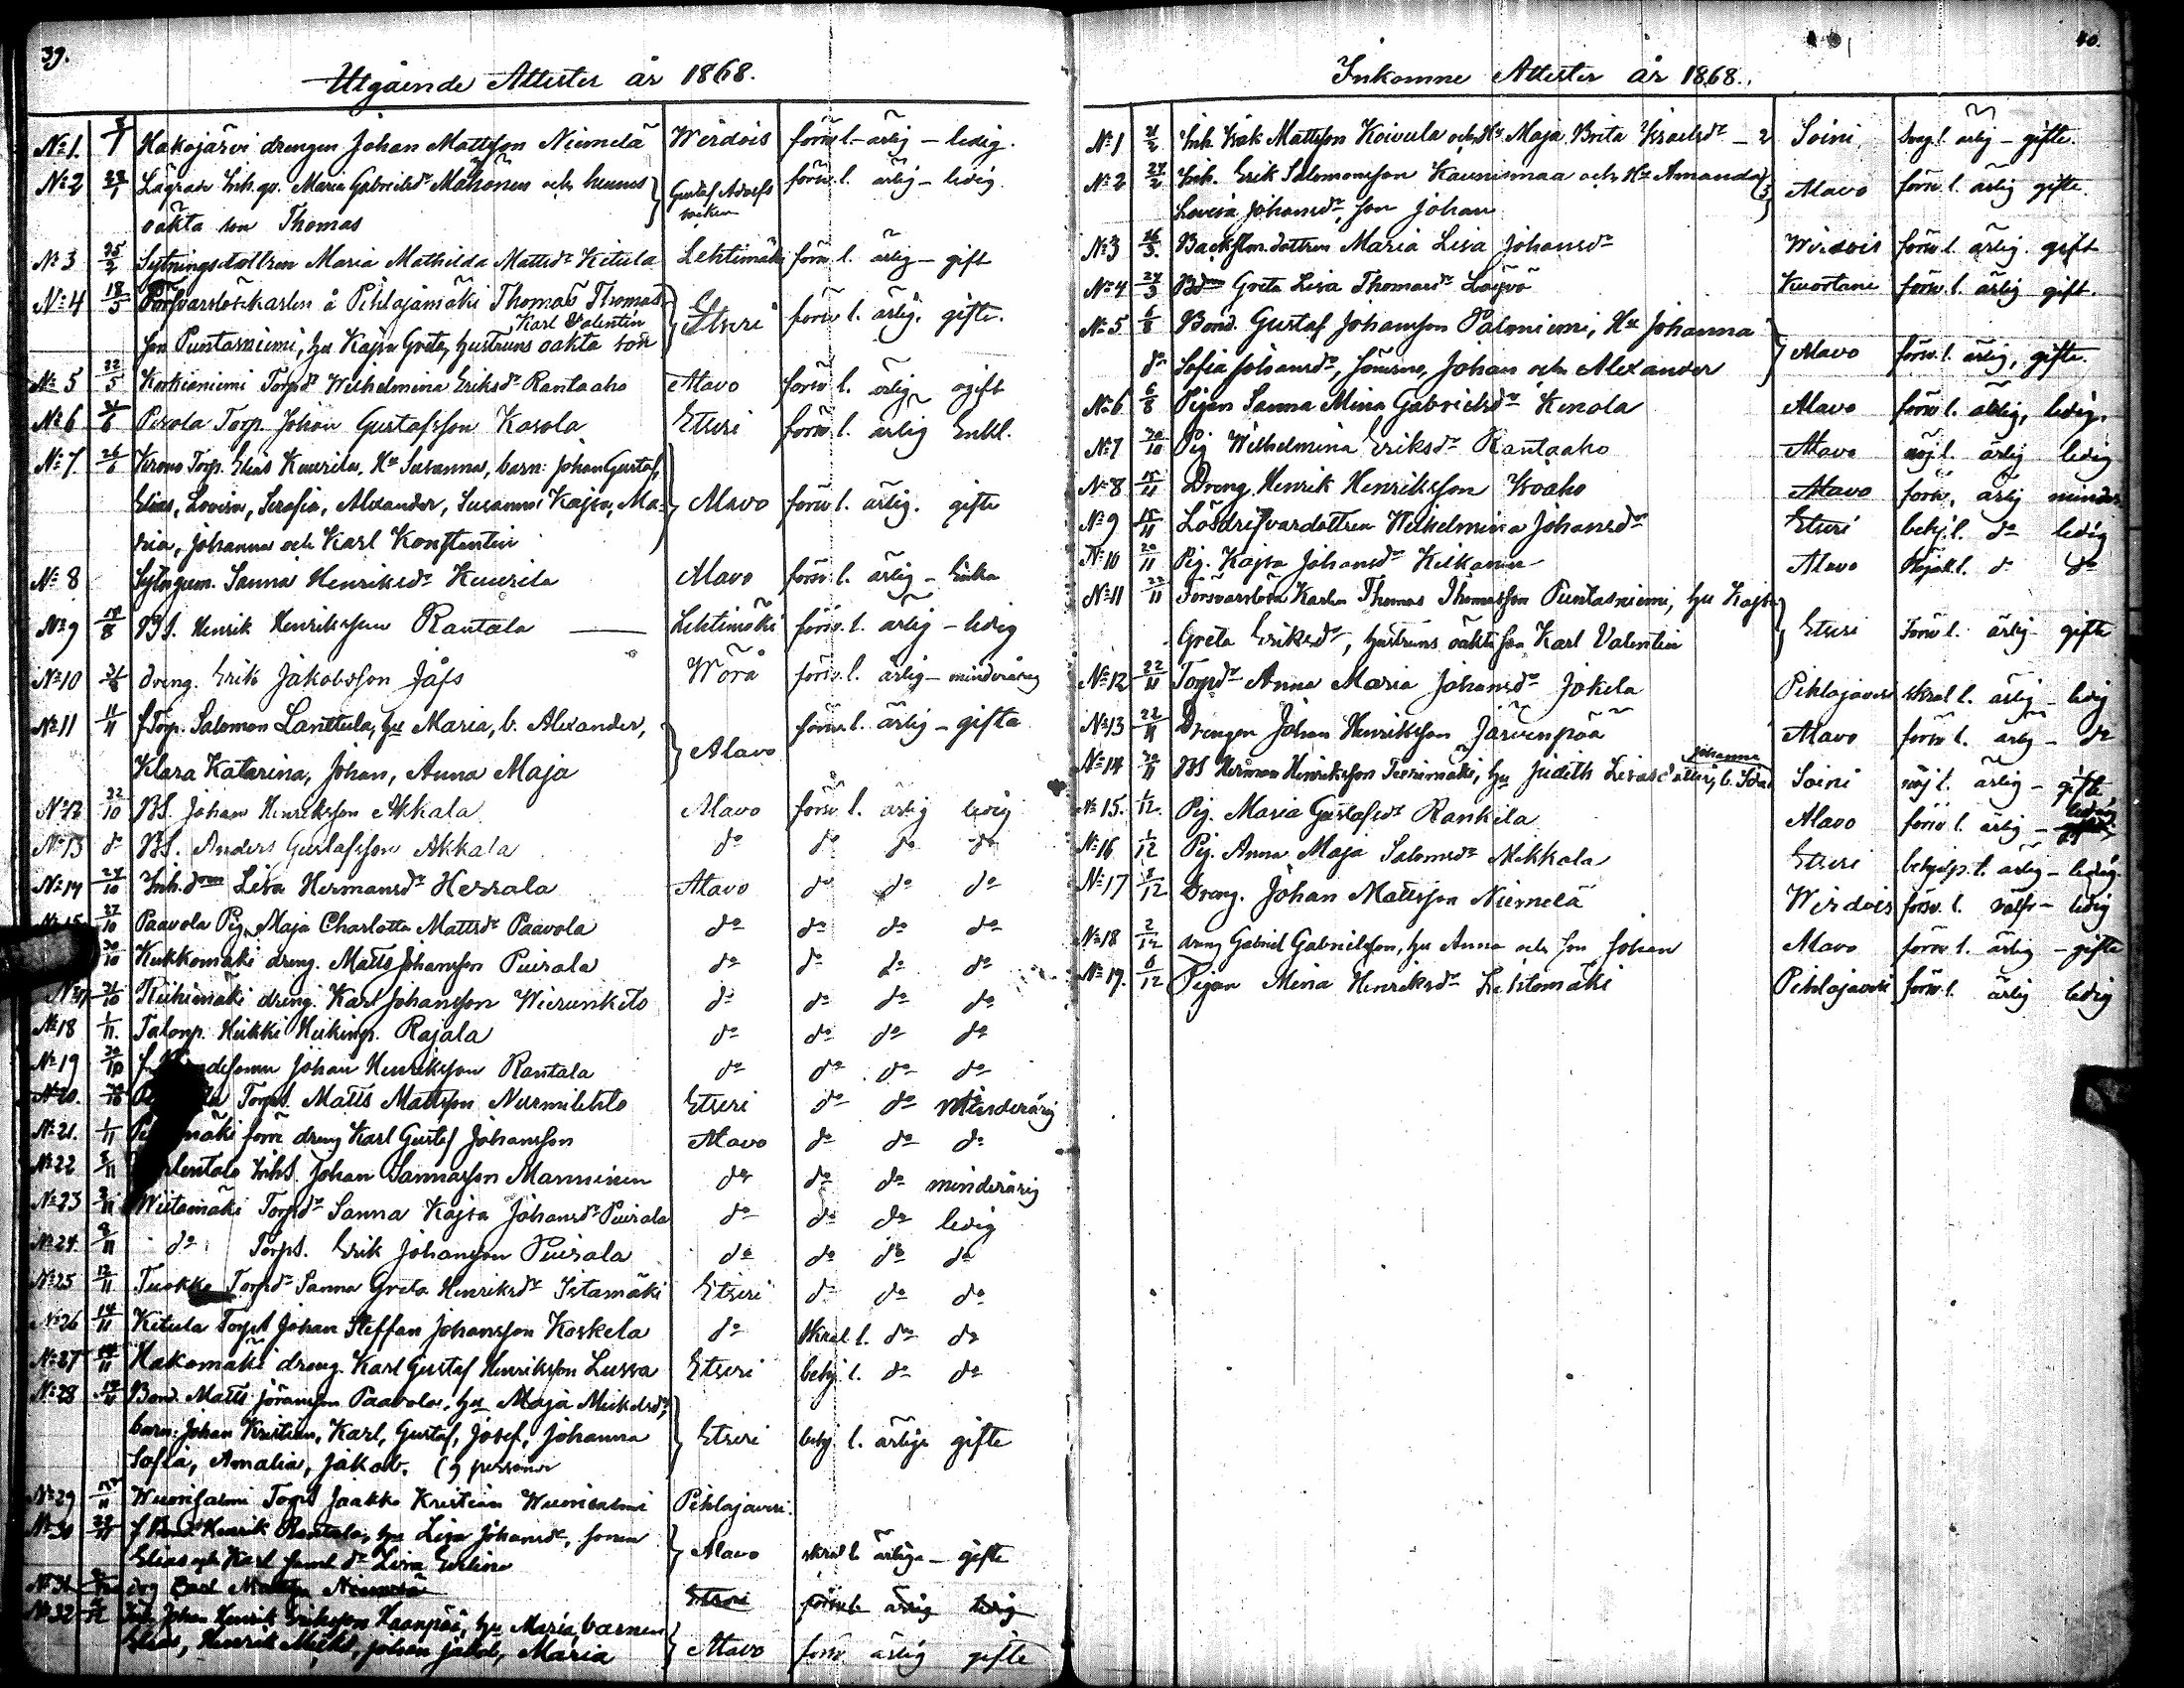 39.
Utgående Attester år 1868.
№ 1. Hakojärvi drengen Johan Mattsson Niemelä Wirdois försv. l. ärlig – ledig.
№ 2 Lägrade Inh. qv. Maria Gabrielsdr Mahonen och hennes Gustaf Adolfs försv. l. ärlig – ledig
oäkta son Thomas
№ 3 25/2 Sytningsdottren Maria Mathilda Mattsdr Kitula Lehtimäki försv. l. ärlig – gift
№ 4 18/5 Försvarslösekarlen å Pihlajamäki Thomas Thomas- Etseri försv. l. ärlig. gifte.
Karl Valentin
son Puntasniemi, hu Kajsa Greta, hustruns oäkta son
№ 5 22/5 Torpdr Wilhelmina Eriksdr Rantaaho Alavo försv. l. ärlig ogift
№ 6 Perola Torp. Johan Gustafsson Karola Etseri försv. l. ärlig Enkl.
№ 7. 26/6 Krono Torp. Elias Kuurila, Hu Susanna, barn: Johan Gustaf,
Elias, Lovisa, Serafia, Alexander, Susanna Kajsa, Ma- Alavo försv. l. ärlig. gifte
ria, Johanna och Karl Konstantin
№ 8 Sytngum. Sanna Henriksdr Kuurila Alavo försv. l. ärlig – Enka
№ 9 BS. Henrik Henriksson Rantala Lehtimäki försv. l. ärlig – ledig
№ 10 dreng. Erik Jakobsson Jåfs Wörå försv. l. ärlig – minderårig
№ 11 11/11 f Torp. Salomon Lanttula, hu Maria, b. Alexander, Alavo försv. l. ärlig – gifta
Klara Katarina, Johan, Anna Maja
№ 12 22/10 BS. Johan Henriksson Akkala Alavo försv. l. ärlig ledig
№ 13 do BS. Anders Gustafsson Akkala do do do do
№ 14 24/10 Inh. dren Lisa Hermansdr Herrala Alavo do do do
№ 15 27/10 Paavola Pig. Maja Charlotta Mattsdr Paavola do do do do
30/10 Kukkomäki dreng. Matts Johansson Puirala do do do do
№ 17 31/10 dreng. Karl Johansson Wierunketo do do do do
№ 18 1/11. Talonp. Heikki Heikinp. Rajala do do do do
№ 19 30/10 Johan Henriksson Rantala do do do do
№ 20. Torps. Matts Mattsson Nurmilehto Etseri do do minderårig
№ 21. 1/11 försv dreng Karl Gustaf Johansson Alavo do do do
№ 22 Inhs. Johan Sannasson Manninen do do do minderårig
№ 23 Wiitamäki Torpdr Sanna Kajsa Johansdr Puirala do do do ledig
№ 24. 8/11 do Torps. Erik Johansson Puirala do do do do
№ 25 12/11 Tuokko Torpdr Sanna Greta Henriksdr Istamäki Etseri do do do
№ 26 14/11 Kitula Torps Johan Steffan Johansson Koskela do skral l. do do
№ 27 14/11 Hakomäki dreng. Karl Gustaf Henriksson Lusva Etseri behj. l. do do
№ 28 Bond. Matts Göransson Paavola, hu Maja Mickelsdr,
barn: Johan Kristian, Karl, Gustaf, Josef, Johanna Etseri behj. l. ärlige gifte
Sofia, Amalia, Jakob. (9 personer
№ 29 Wuorisalmi Torps Jaakko Kristian Wuorisalmi Pihlajavesi.
№ 30 f Bond Henrik Rantala, hu Lisa Johansdr, sonen
Elias och Karl samt dr Lisa Evelina Alavo skral l. ärliga – gifte
№ 31 Niemelä Etseri försv. l. ärlig ledig
№ 32 Inh. Johan Henrik Eriksson Haanpää, hu Maria, barnen
Elias, Henrik Mickel, Johan Jakob, Maria Alavo försv. ärlig gifte
40.
Inkomne Attester år 1868.
№ 1 21/2 Inh. Isak Mattsson Koivula och Hu Maja Brita Israelsdr – 2 Soini svag l. ärlig – gifte.
№ 2 27/2 Inh. Erik Salomonsson Kaunismaa och Hu Amanda 3 Alavo försv. l. ärlig gifte.
Lovisa Johansdr, son Johan
№ 3 16/3. Backstu. dottren Maria Lisa Johansdr Wirdois försv. l. ärlig. gift
№ 4 27/3 Greta Lisa Thomasdr Löyvä Kuortane försv. l. ärlig gift.
№ 5 6/8 Bond. Gustaf Johansson Paloniemi, Hu Johanna
Sofia Johansdr, Sönerne, Johan och Alexander Alavo försv. l. ärlig, gifte.
№ 6 6/8 Pigan Sanna Mina Gabrielsdr Kenola Alavo försv. l. ärlig, ledig.
№ 7 30/10 Pig Wilhelmina Eriksdr Rantaaho Alavo nöj l. ärlig ledig
№ 8 15/11 Dreng. Henrik Henriksson Isoaho Alavo försv. ärlig minder.
№ 9 15/11 Lösdrifvardottren Wilhelmina Johansdr Etseri behj. l. do ledig
№ 10 20/11 Pig. Kajsa Johansdr Kilkanen Alavo Nöjakl. do do
№ 11 22/11 Försvarslösa Karlen Thomas Thomasson Puntasniemi, hu Kajsa
Greta Eriksdr, hustruns oäkta son Karl Valentin Etseri försv l. ärlig gifte
№ 12 22/11 Torpdr Anna Maria Johansdr Jokela Pihlajavesi skral l. ärlig – ledig
№ 13 22/11 Drengen Johan Henriksson Järvenpää Alavo försv l. ärlig – do
Johanna
№ 14 BS Herman Henriksson Teerimäki, hu Judith Lisasdotter, b. Soini nöj l. ärlig – gifte
№ 15. 1/12. Pig. Maria Gustafsdr Rankila Alavo försv l. ärlig – ledig
№ 16 1/12 Pig. Anna Maja Salomsdr Mikkola Etseri behjelp. l. ärlig – ledig.
№ 17 Dreng. Johan Mattsson Niemelä Wirdois försv. l. välfr – ledig
№ 18 2/12 dreng Gabriel Gabrielsson, hu Anna och son Johan Alavo försv l. ärlig – gifte
№ 19. 6/12 Pigan Mina Henriksdr Lehtomäki Pihlajavesi försv l. ärlig ledig